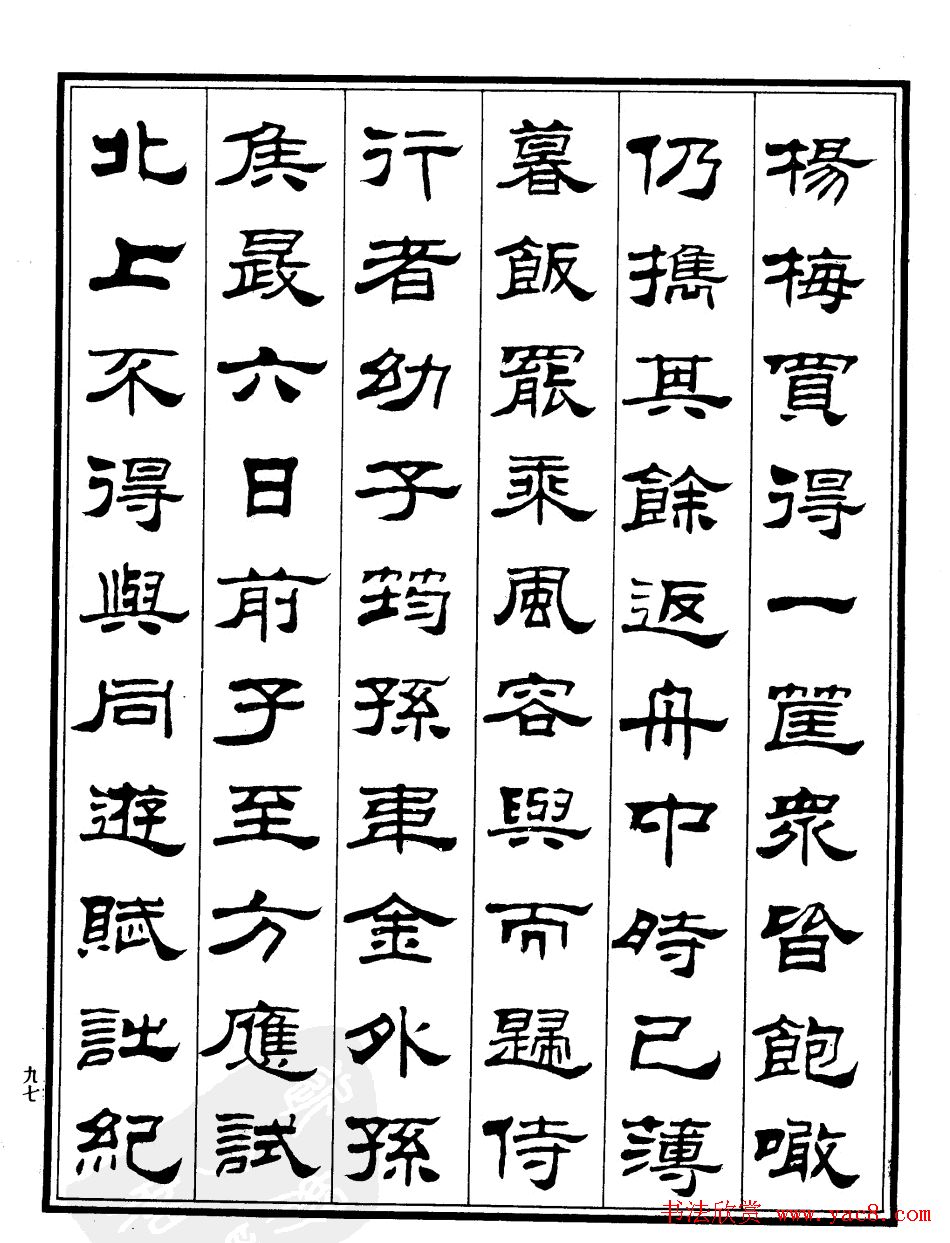 楊梅買得一筐眾皆飽噉
仍攜其餘返舟中時已薄
暮飯罷乘風容與而歸侍
行者幼子筠孫車金外孫
矦最六日前子至方應試
北上不得與同遊賦詩紀
九七
书法欣赏 www.yac8.com